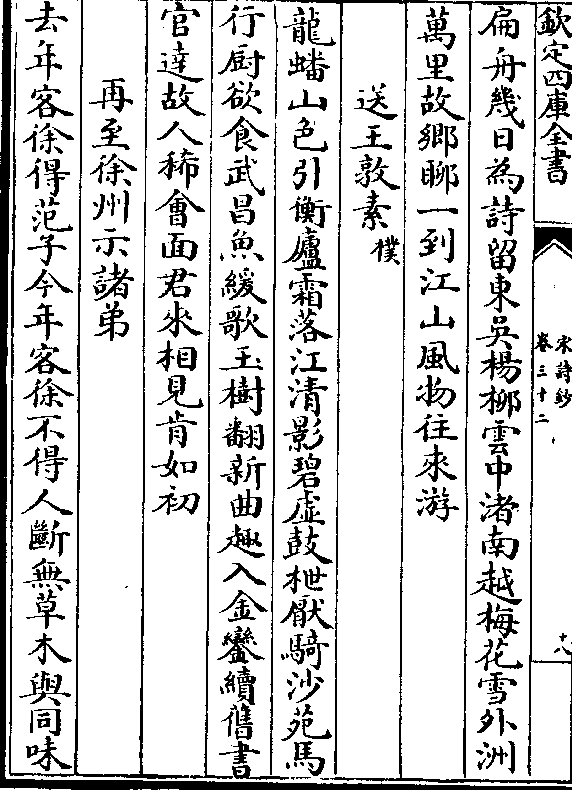 欽定四庫全書
宋詩鈔
卷三十二
十八
扁舟幾日為詩留東吳楊柳雲中渚南越梅花雪外洲
萬里故鄉聊一到江山風物往來游
送王敦素 樸
龍蟠山色引衡廬霜落江清影碧虛鼓枻厭騎沙苑馬
行厨欲食武昌魚緩歌玉樹翻新曲趣入金鑾續舊書
官達故人稀會面君來相見肯如初
再至徐州示諸弟
去年客徐得范子今年客徐不得人斷無草木與同味